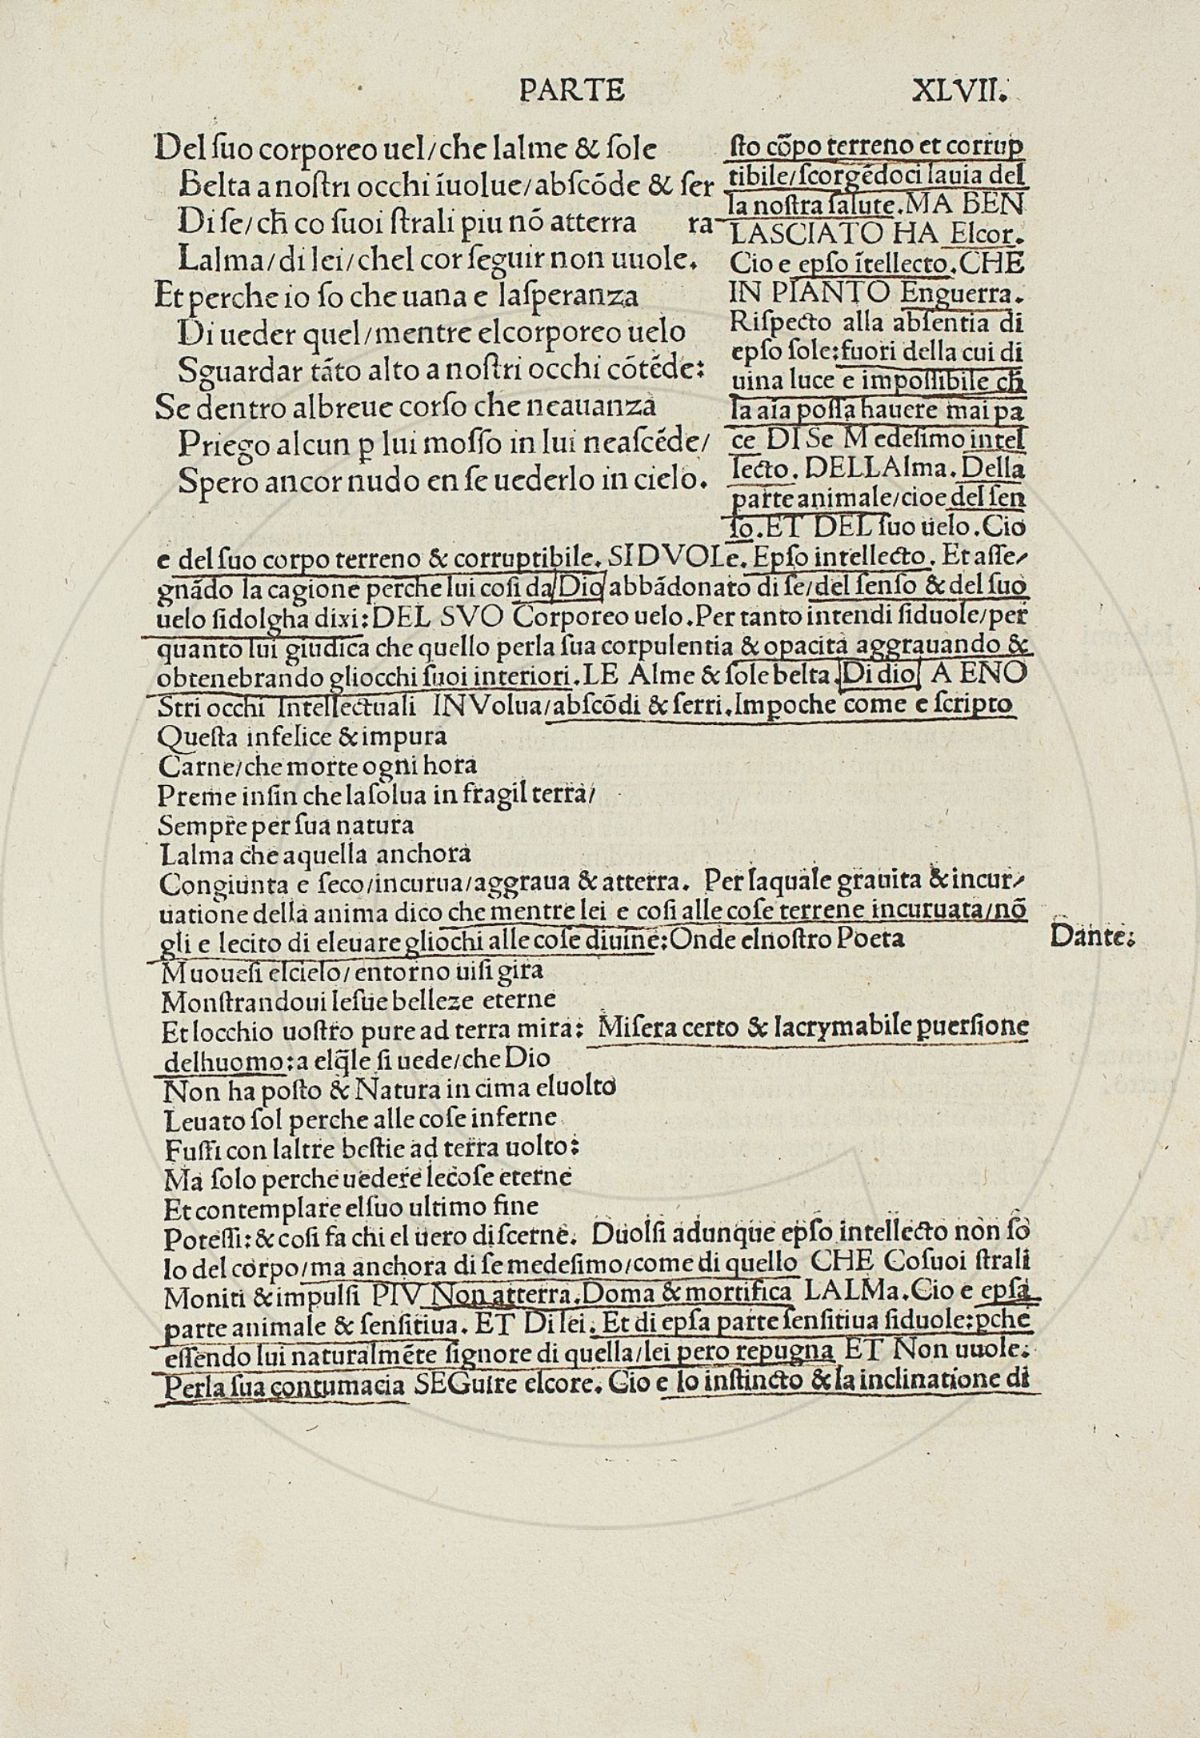 PARTE XLVII.
Del ſuo corporeo uel/che lalme & ſole
Belta a noſtri occhi īuolue/abſcōde & ſer
Di ſe/cħ co ſuoi ſtrali piu nō atterra ra
Lalma/di lei/chel cor ſeguir non uuole.
Et perche io ſo che uana e laſperanza
Di ueder quel/mentre elcorporeo uelo
Sguardar tāto alto a noſtri occhi cōtēde:
Se dentro albreue corſo che neauanza
Priego alcun ꝑ lui moſſo in lui neaſcēde/
Spero ancor nudo en ſe uederlo in cielo.
ſto cōpo terreno et corrup
tibile/ſcorgēdoci lauia del
la noſtra ſalute.MA BEN
LASCIATO HA Elcor.
Cio e epſo ītellecto.CHE
IN PIANTO Enguerra.
Riſpecto alla abſentia di
epſo ſole:fuori della cui di
uina luce e impoſſibile cħ
la aīa poſſa hauere mai pa
ce DI Se Medeſimo intel
lecto. DELLAlma. Della
parte animale/cioe del ſen
ſo.ET DEL ſuo uelo.Cio
e del ſuo corpo terreno & corruptibile. SIDVOLe. Epſo intellecto. Et aſſe/
gnādo la cagione perche lui coſi da Dio abbādonato di ſe/del ſenſo & del ſuo
uelo ſidolgha dixi:DEL SVO Corporeo uelo.Per tanto intendi ſiduole/per
quanto lui giudica che quello perla ſua corpulentia & opacita aggrauando &
obtenebrando gliocchi ſuoi interiori.LE Alme & ſole belta.Di dio A ENO
Stri occhi Intellectuali INVolua/abſcōdi & ſerri.Impoche come e ſcripto
Queſta infelice & impura
Carne/che morte ogni hora
Preme inſin che laſolua in fragil terra/
Sempre per ſua natura
Lalma che aquella anchora
Congiunta e ſeco/incurua/aggraua & atterra. Per laquale grauita & incur/
uatione della anima dico che mentre lei e coſi alle coſe terrene incuruata/nō
gli e lecito di eleuare gliochi alle coſe diuine:Onde elnoſtro Poeta
Dante:
Muoueſi elcielo/entorno uiſi gira
Monſtrandoui leſue belleze eterne
Et locchio uoſtro pure ad terra mira: Miſera certo & lacrymabile ꝑuerſione
delhuomo:a elq̄le ſi uede/che Dio
Non ha poſto & Natura in cima eluolto
Leuato ſol perche alle coſe inferne
Fuſſi con laltre beſtie ad terra uolto:
Ma ſolo perche uedere lecoſe eterne
Et contemplare elſuo ultimo fine
Poteſſi:& coſi fa chi el uero diſcerne. Duolſi adunque epſo intellecto non ſo
lo del corpo/ma anchora di ſe medeſimo/come di quello CHE Coſuoi ſtrali
Moniti & impulſi PIV Non atterra.Doma & mortifica LALMa.Cio e epſa
parte animale & ſenſitiua. ET Di lei. Et di epſa parte ſenſitiua ſiduole:ꝑche
eſſendo lui naturalmēte ſignore di quella/lei pero repugna ET Non uuole.
Perla ſua contumacia SEGuire elcore.Cio e lo inſtincto & la inclinatione di